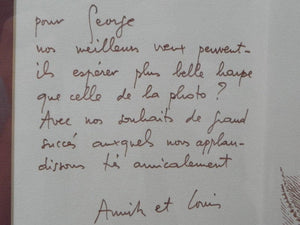 pour George
nos meilleurs vœux peuvent-
ils espérer plus belle harpe
que celle de la photo ?
Avec nos souhaits de grand
succés auxquels nous applau-
dissons tés amicalement
Annik et Louis